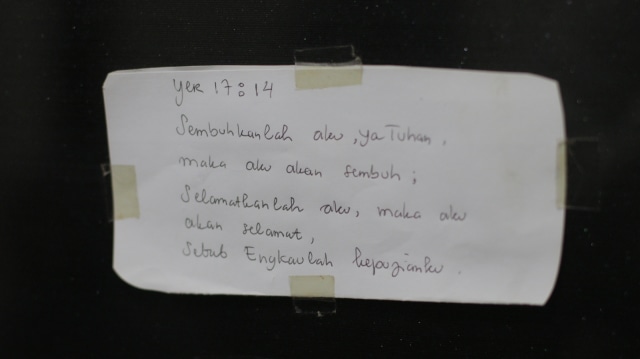 Yer 17:14
Sembuhkanlah aku, ya Tuhan,
maka aku akan sembuh;
Selamatkanlah aku, maka aku
akan selamat,
Sebab Engkaulah kepujianku.